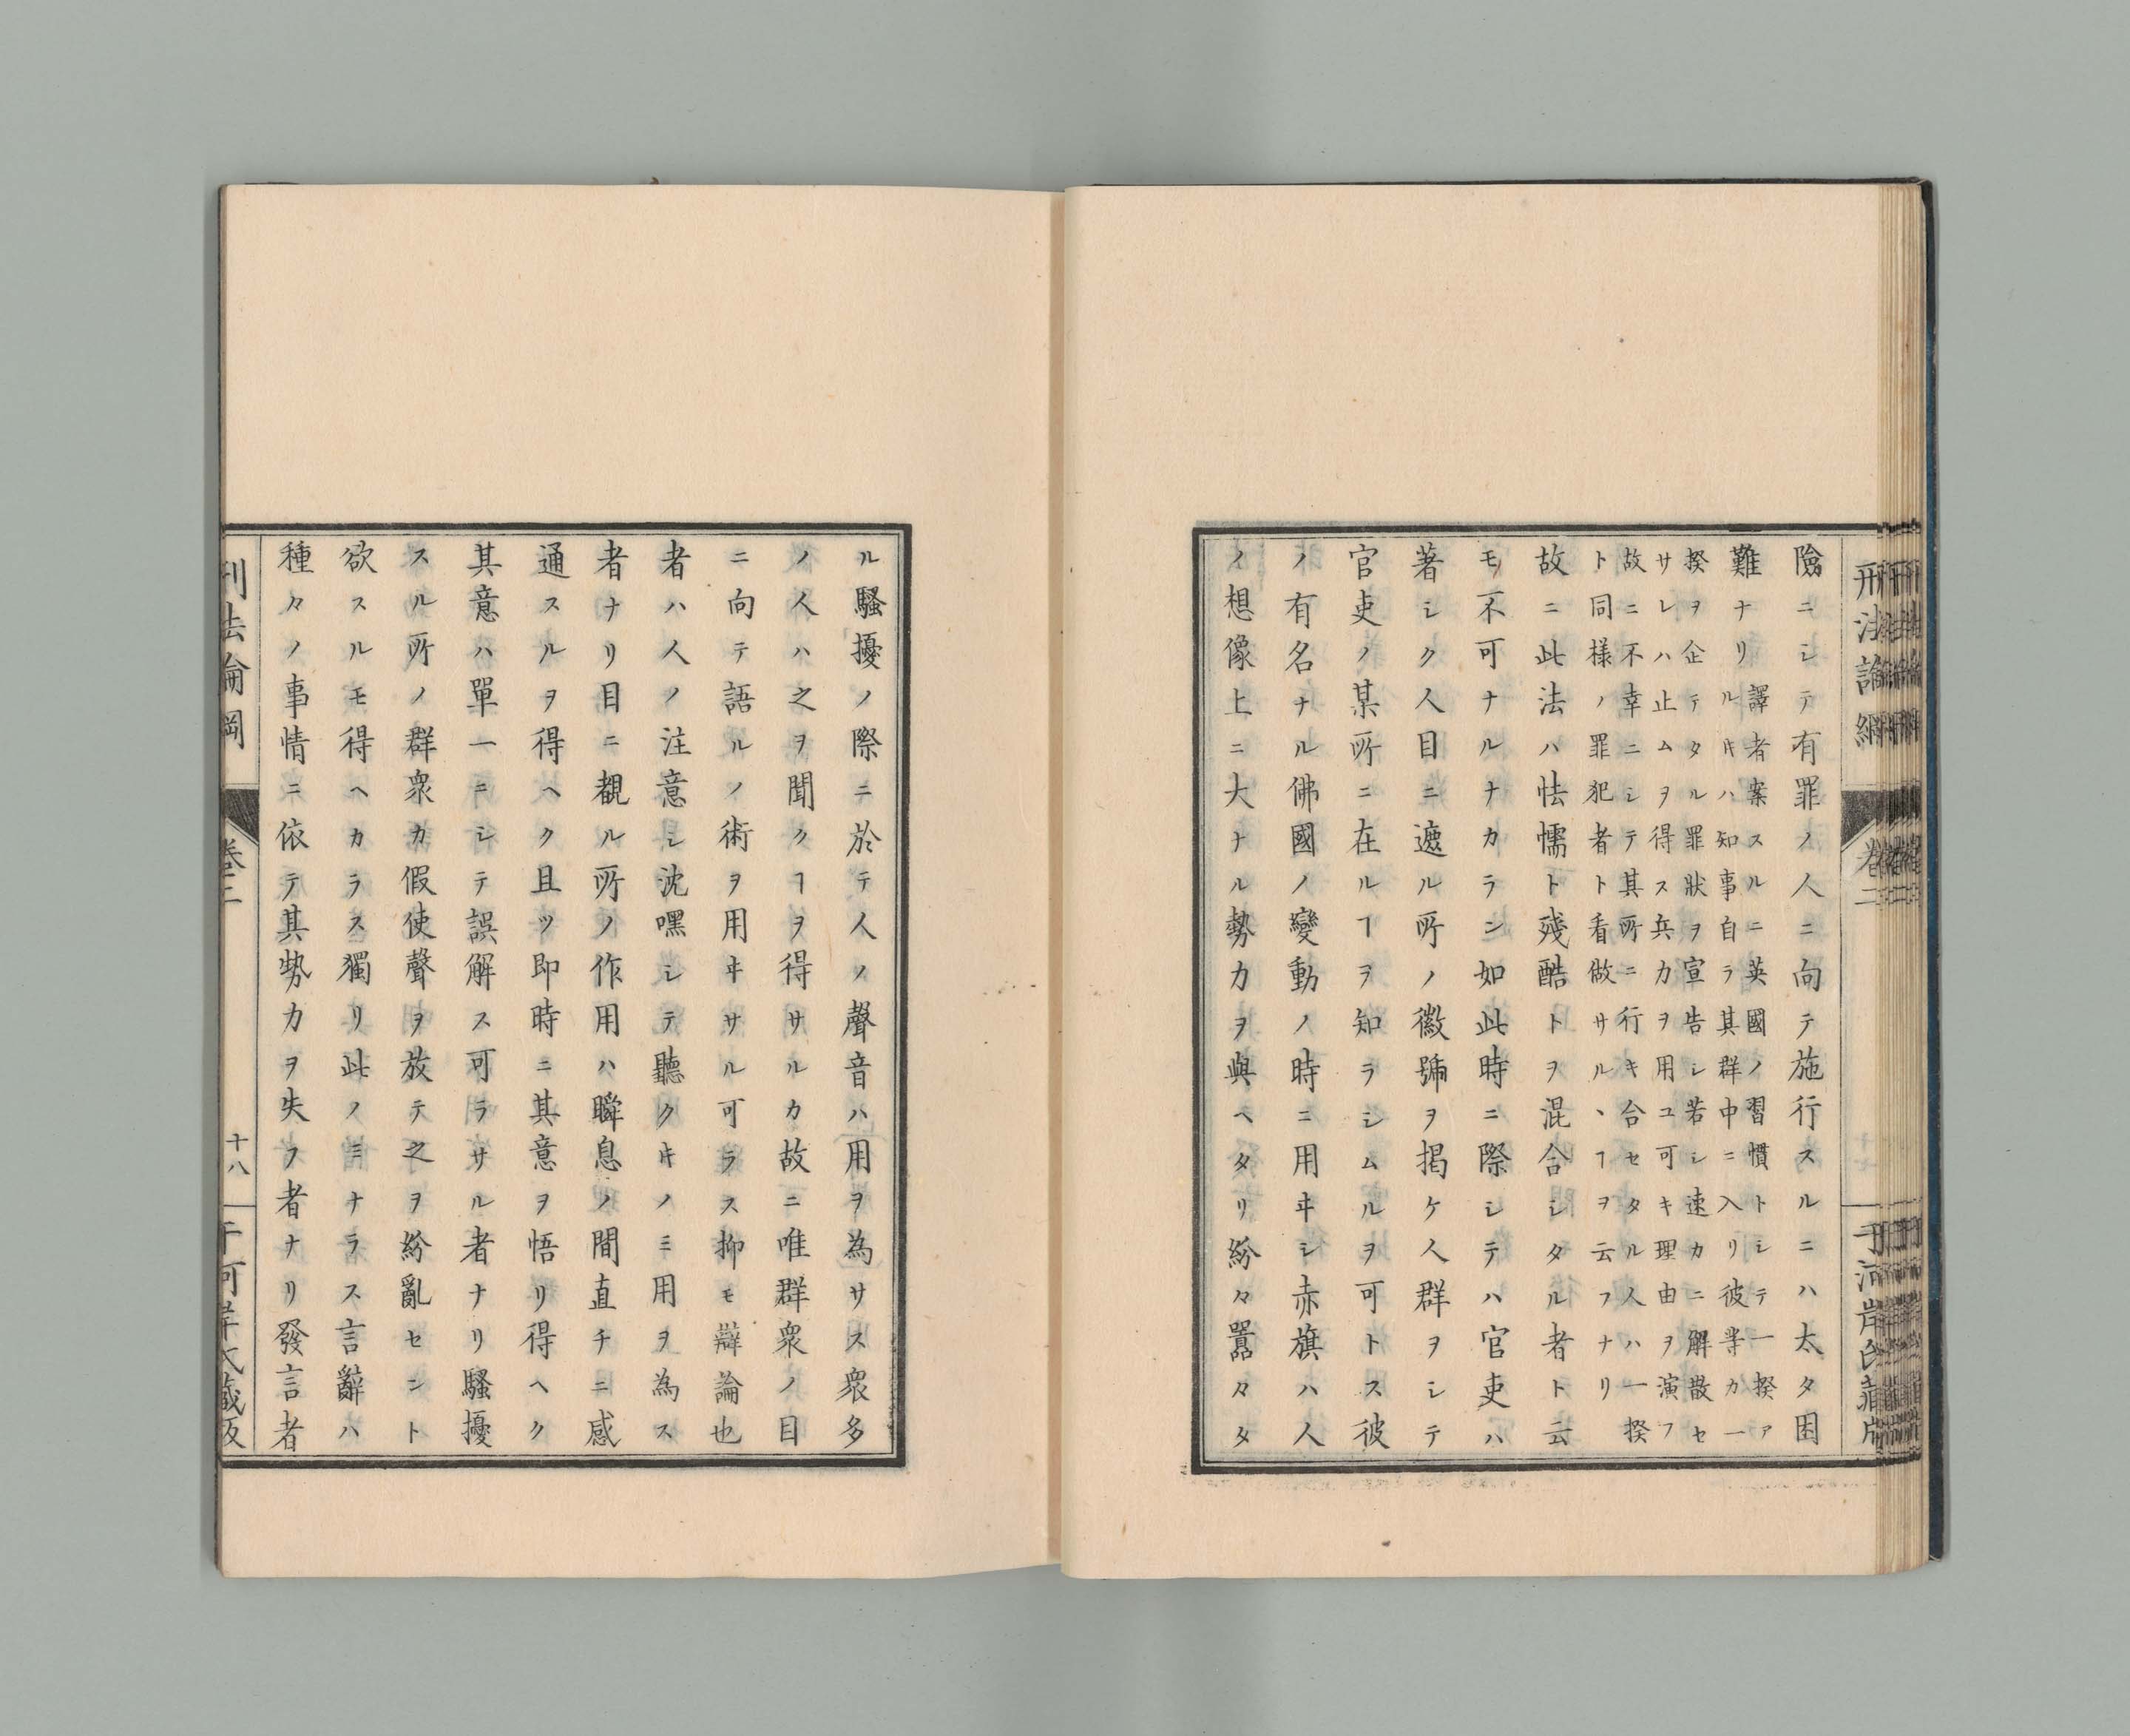 險ニシテ有罪ノ人ニ向テ施行スルニハ太タ困
難ナリ
譯者案スルニ英國ノ習慣トシテ一揆ァ
ルキハ知事自ラ其群中ニ入リ彼等カ一
揆ヲ企テタル罪狀ヲ宣告シ若シ速カニ解散セ
サレハ止ムヲ得ス兵力ヲ用ユ可キ理由ヲ演フ
故ニ不幸ニシテ其所ニ行キ合セタル人ハ一揆
ト同樣ノ罪犯者ト看做サルヽヿヲ云フナリ
故ニ此法ハ怯懦ト殘酷トヲ混合シタル者ト云
モ不可ナルナカラン如此時ニ際シテハ官吏ハ
著シク人目ニ遮ル所ノ徽號ヲ揭ケ人群ヲシテ
官吏ノ某所ニ在ルヿヲ知ラシムルヲ可トス彼
ノ有名ナル佛國ノ變動ノ時ニ用ヰシ赤旗ハ人
ノ想像上ニ大ナル勢力ヲ與ヘタリ紛々囂々タ
ル騷擾ノ際ニ於テ人ノ聲音ハ用ヲ為サス衆多
ノ人ハ之ヲ聞クヿヲ得サルカ故ニ唯群衆ノ目
ニ向テ語ルノ術ヲ用ヰサル可ラス抑モ辯論也
者ハ人ノ注意シ沈嘿シテ聽クキノミ用ヲ為ス
者ナリ目ニ覩ル所ノ作用ハ瞬息ノ間直チニ感
通スルヲ得ヘク且ツ即時ニ其意ヲ悟リ得ヘク
其意ハ單一ニシテ誤解ス可ラサル者ナリ騷擾
スル所ノ群衆カ假使聲ヲ放テ之ヲ紛亂セント
欲スルモ得ヘカラス獨リ此ノミナラス言辭ハ
種々ノ事情ニ依テ其勢力ヲ失フ者ナリ發言者
刑法論綱
卷二
十八